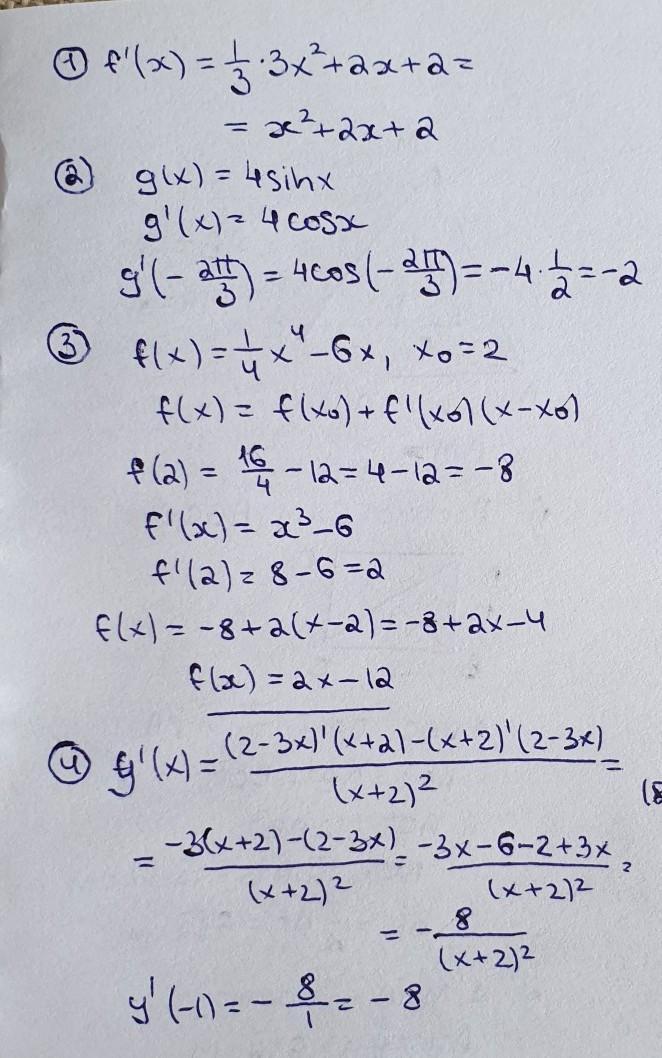 ① f'(x) = 1/3 · 3x² + 2x + 2 =
= x² + 2x + 2
② g(x) = 4sinx
g'(x) = 4cosx
g'(- 2π/3) = 4cos(- 2π/3) = -4 · 1/2 = -2
③ f(x) = 1/4 x⁴ - 6x, x₀ = 2
f(x) = f(x₀) + f'(x₀)(x - x₀)
f(2) = 16/4 - 12 = 4 - 12 = -8
f'(x) = x³ - 6
f'(2) = 8 - 6 = 2
f(x) = -8 + 2(x - 2) = -8 + 2x - 4
f(x) = 2x - 12
④ y'(x) = ((2-3x)'(x+2) - (x+2)'(2-3x))/(x+2)² =
= (-3(x+2) - (2-3x))/(x+2)² = (-3x - 6 - 2 + 3x)/(x+2)² =
= - 8/(x+2)²
y'(-1) = - 8/1 = -8